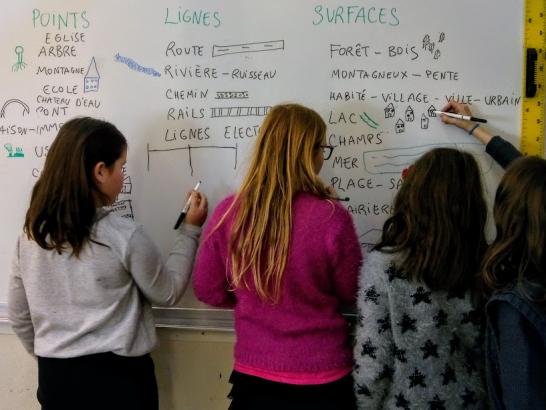 POINTS
EGLISE
ARBRE
MONTAGNE
ECOLE
CHATEAU D'EAU
PONT
LIGNES
ROUTE
RIVIÈRE - RUISSEAU
CHEMIN
RAILS
LIGNES ELECT
SURFACES
FORÊT - BOIS
MONTAGNEUX - PENTE
HABITÉ - VILLAGE - VILLE - URBAIN
LAC
CHAMPS
MER
PLAGE - SA